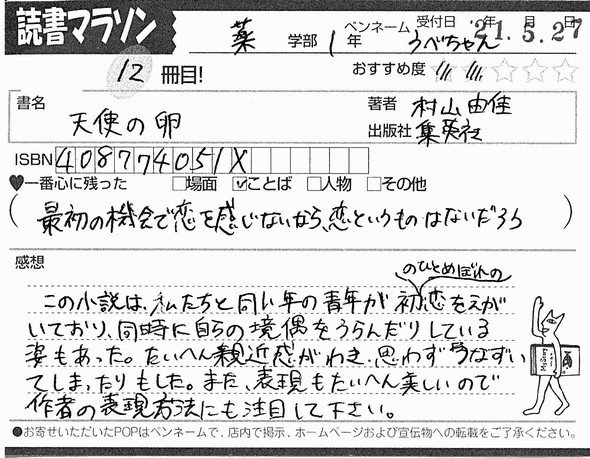 読書マラソン
薬 学部 1年 ペンネーム うべちゃん 受付日 '21.5.27 年 月 日
12 冊目! おすすめ度 ☆☆☆☆☆
書名 天使の卵
著者 村山由佳
出版社 集英社
ISBN 408774051X
♥一番心に残った □場面 ☑ことば □人物 □その他
(最初の機会で恋を感じないなら、恋というものはないだろう)
感想
のひとめぼれの
この小説は、私たちと同い年の青年が初恋をえが
いており、同時に自らの境偶をうらんだりしている
姿もあった。たいへん親近感がわき、思わずうなずい
てしまったりもした。また、表現もたいへん美しいので
作者の表現方法にも注目して下さい。
●お寄せいただいたPOPはペンネームで、店内で掲示、ホームページおよび宣伝物への転載をご了承ください。